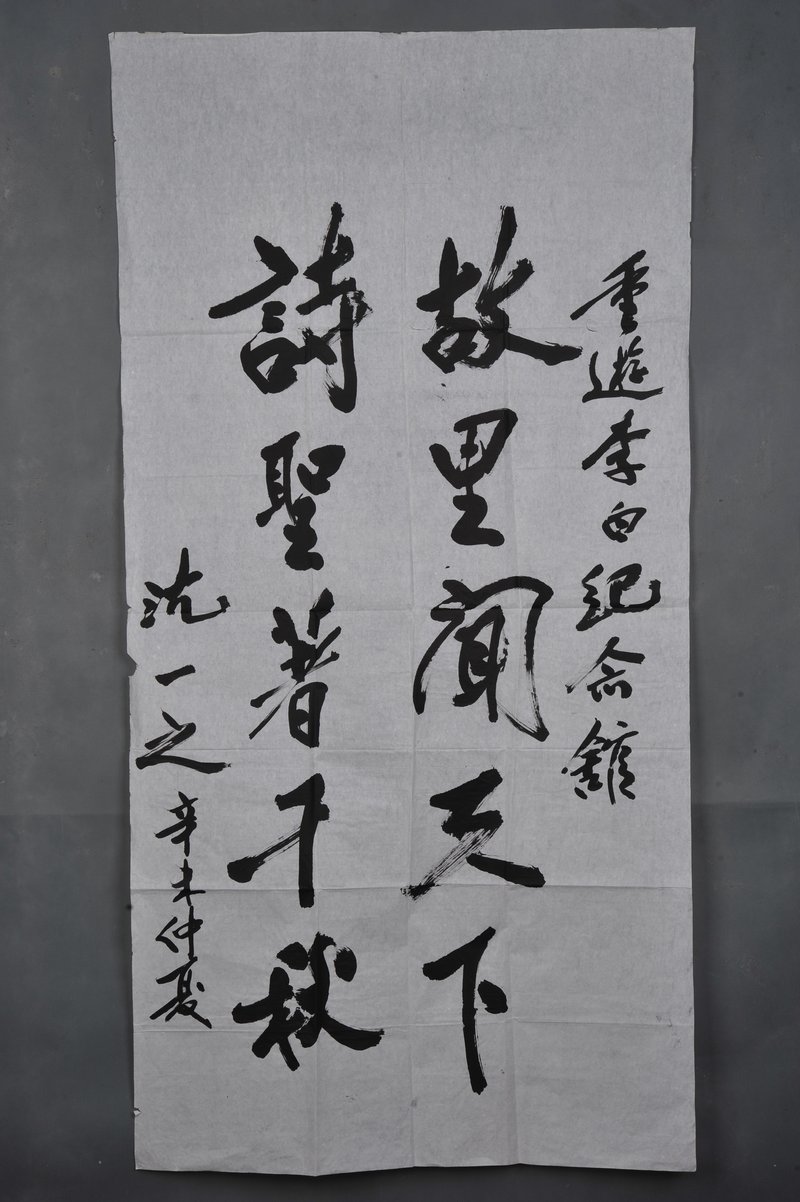 重遊李白紀念館
故里聞天下
詩聖著千秋
沈一之
辛未仲夏